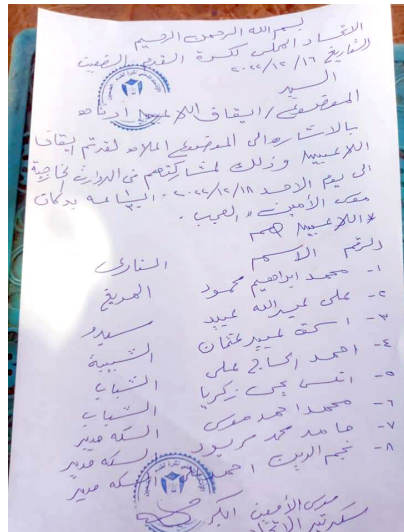 بسم الله الرحمن الرحيم
الاتحاد المحلي لكرة القدم الضعين
التاريخ ١٦/١٢/٢٠٢٢
السيد
الموضوع / ايقاف اللاعبين ادناه
بالاشارة الى الموضوع اعلاه لقد تم ايقاف
اللاعبين وذلك لمشاركتهم في الدورات خارجية
الى يوم الاحد ١٨/١٢/٢٠٢٢. الساعه بدكان
موسى الأمين
اللاعبين هم
الرقم الاسم النادي
١- محمد ابراهيم محمود المريخ
٢- علي عبدالله عبيد
٣- اسحق عبيد عثمان الشبيبة
٤- احمد الحاج علي الشباب
٥- انس يحي زكريا الشباب
٦- محمد احمد موسى السكه حديد
٧- حامد محمد السكه حديد
٨- نجم الدين احمد السكه حديد
موسى الأمين
سكرتير الاتحاد